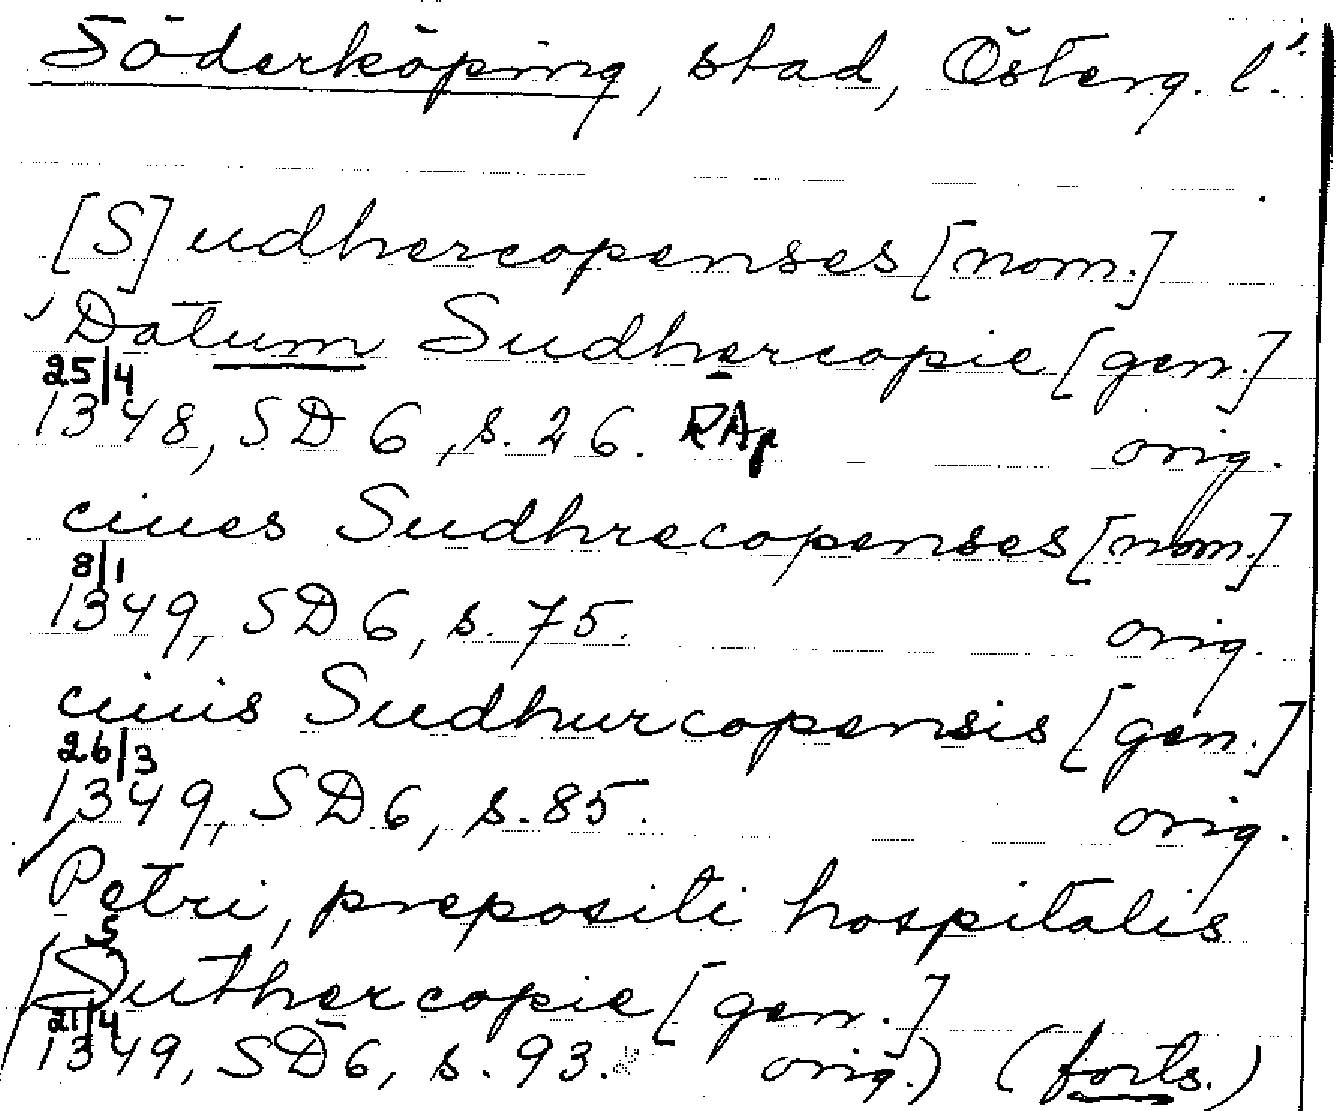 Söderköping, stad, Österg. l.
[S]udhercopenses [nom.]
Datum Sudhercopie [gen.]
25/4
1348, SD 6, s. 26. RAp orig.
ciues Sudhrecopenses [nom.]
8/1
1349, SD 6, s. 75. orig.
ciuis Sudhurcopensis [gen.]
26/3
1349, SD 6, s. 85. orig.
Petri, prepositi hospitalis
Suthercopie [gen.]
21/4
1349, SD 6, s. 93. orig.) (forts.)